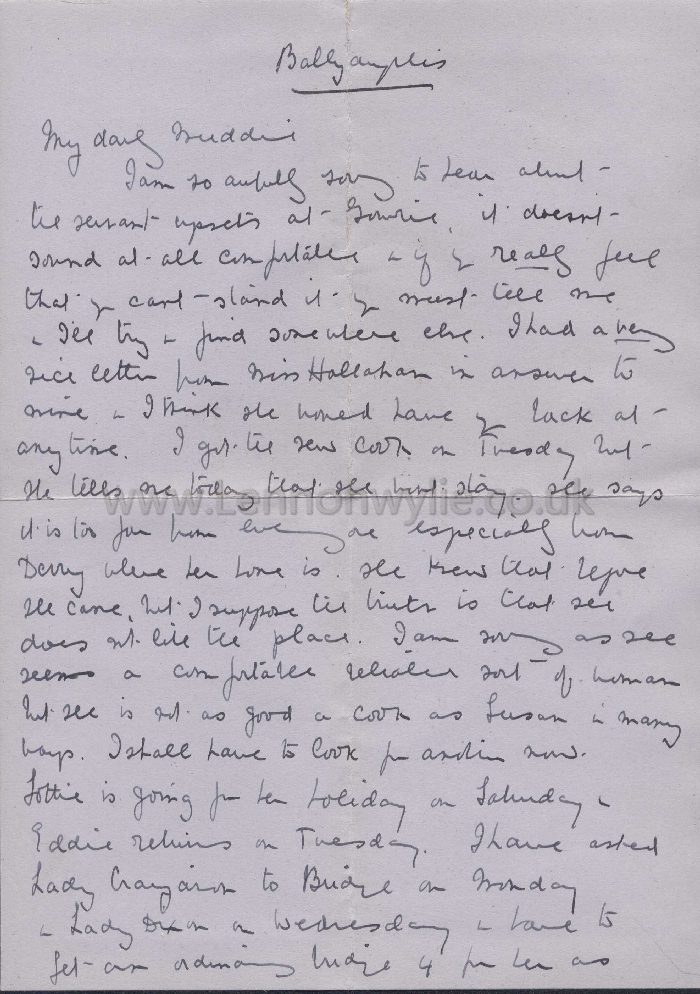 Ballyauplis
My darlg Muddie
I am so awfully sorry to hear about
the servant upsets at Gowrie, it doesnt
sound at all comfortable & if y really feel
that y cant stand it y must tell me
& I'll try & find somewhere else. I had a very
nice letter from Miss Hallahan in answer to
mine & I think she would have y back at
anytime. I got the new cook on Tuesday but
she tells me today that she wont stay. she says
it is too far from every one especially from
Derry where her home is. she knew that before
she came, but I suppose the truth is that she
does not like the place. I am sorry as she
seems a comfortable reliable sort of woman
but she is not as good a cook as Susan in many
ways. I shall have to look for another now.
Lottie is going for her holiday on Saturday &
Eddie returns on Tuesday. I have asked
Lady Craigavon to Bridge on Monday
& Lady Dixon on Wednesday & have to
get an ordinary bridge 4 for her as
www.Lennonwylie.co.uk